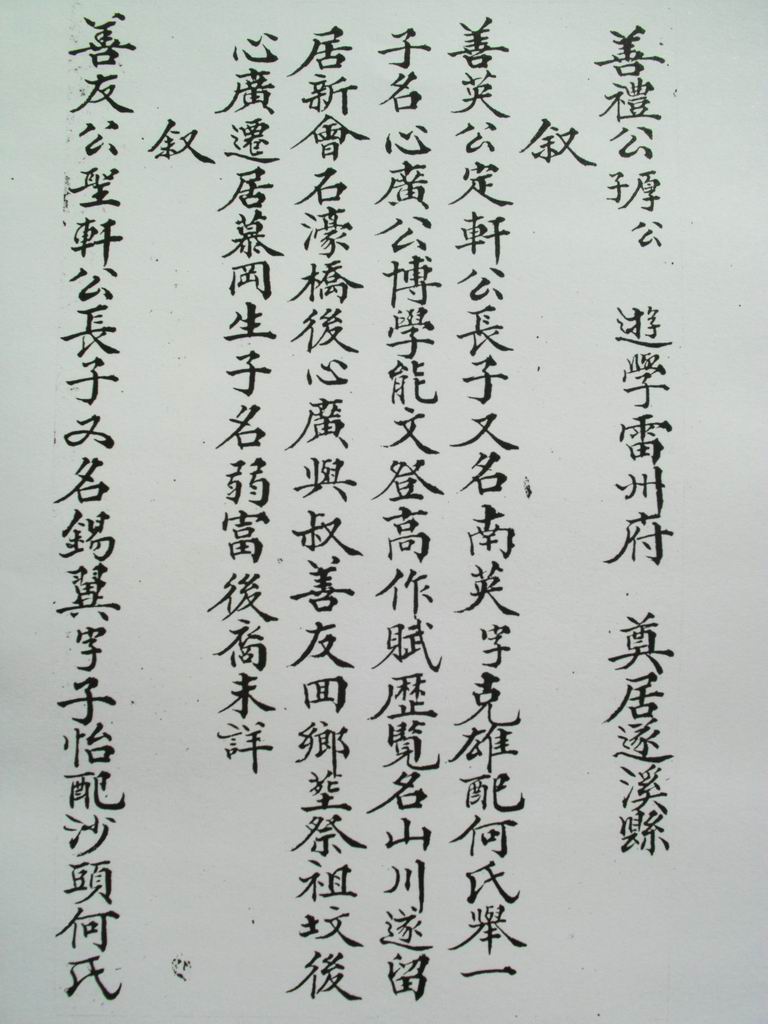 善禮公厚公子 遊學雷州府 奠居遂溪縣
叙
善英公定軒公長子又名南英字克雄配何氏舉一
子名心廣公博學能文登高作賦歷覽名山川遂留
居新會石濠橋後心廣與叔善友囬鄉塟祭祖坟後
心廣遷居慕岡生子名弱富後裔未詳
叙
善友公聖軒公長子又名錫翼字子怡配沙頭何氏